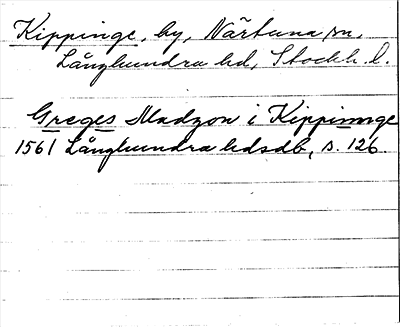 Kippinge, by, Närtuna sn,
Långhundra hd, Stockh. l.
Greges Madzon i Kippinnge
1561 Långhundra hdsdb, s. 126.